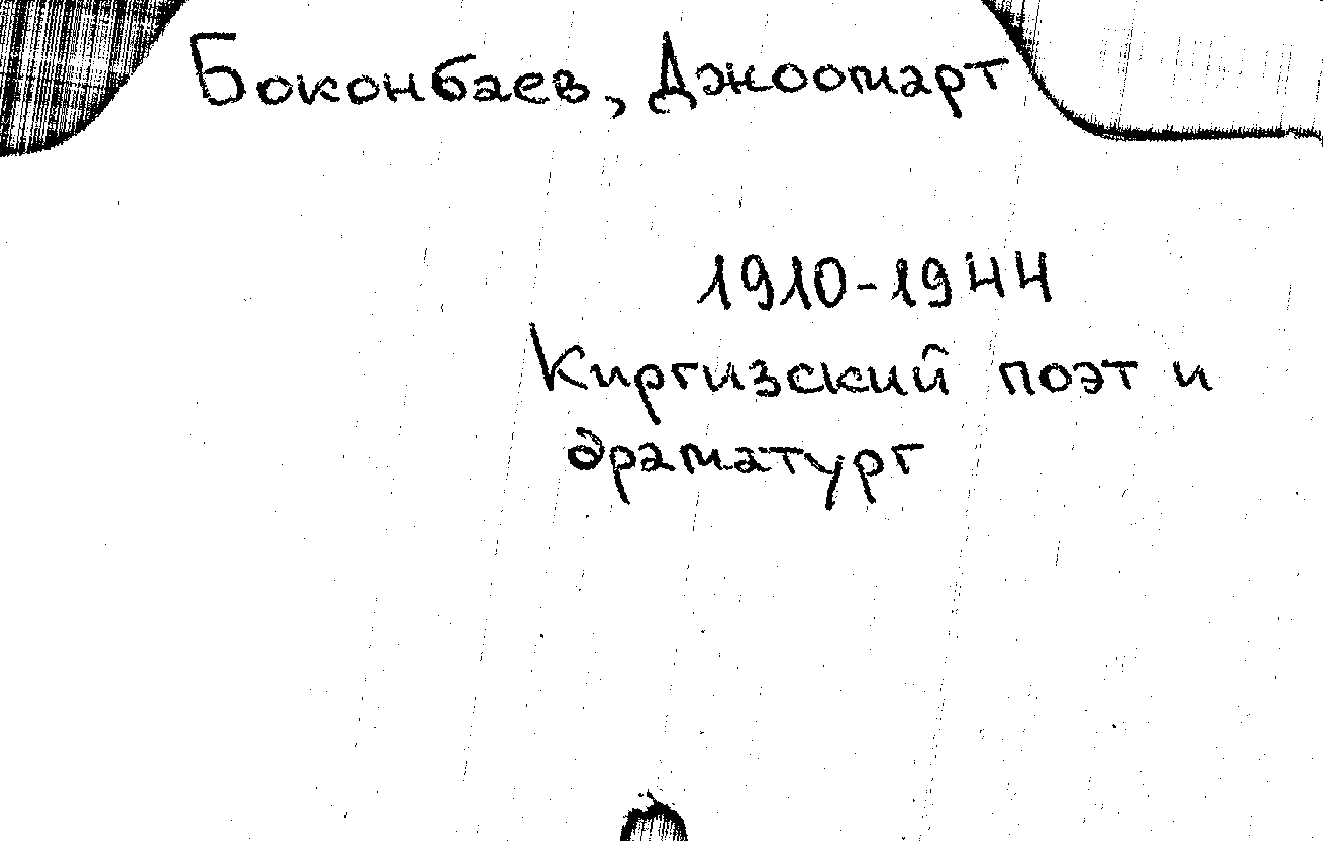 Боконбаев, Джоомарт
1910-1944
Киргизский поэт и
драматург